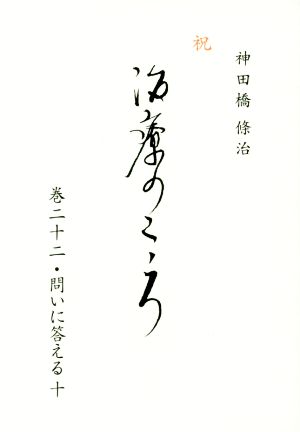 神田橋 條治
祝
治療のこころ
巻二十二・問いに答える十